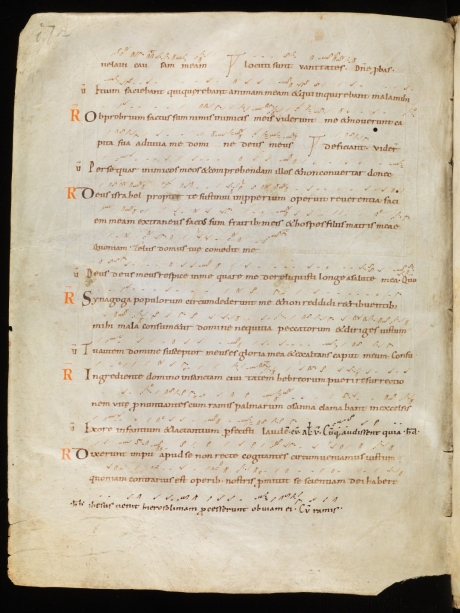 uelam cau sam meam V locuti sunt vanitates. Dne plus.
V Et uim faciebant qui querebant animam meam & qui inquirebant mala mihi
R Obprobrium factus sum nimis inimicis meis viderunt me & mouerunt ca
pita sua adiuua me domi ne deus meus V deficiant vider
V Persequar inimicos meos & comprehendam illos & non convertar donec
R Deus israhel propter te sustinui impperium operuit reverentia faci
em meam extraneus factus sum fratribus meis & hospes filiis matris meae
Quoniam zelus domus tue comedit me
V Deus deus meus respice in me quare me dereliquisti longe a salute mea. Quo
R Synagoga populorum circumdederunt me & non reddidi retribuentib;
mihi mala consumetur domine nequitia peccatorum & diriges iustum
V Tu autem domine susceptor meus es gloria mea & exaltans caput meum. Consu
R Ingrediente domino in sanctam ciuitatem hebreorum pueri resurrectio
nem vite pnuntiantes cum ramis palmarum osanna clamabant in excelsis
V Ex ore infantium & lactantium perfecisti laudem Cumq; audissent quia
R Dixerunt impii apud se non recte cogitantes circumveniamus iustum
quoniam contrarius est operib; nostris pmittit se scientiam dei habere
ihesus uenit hierosolimam pcesserunt obuiam ei. Cu ramis.